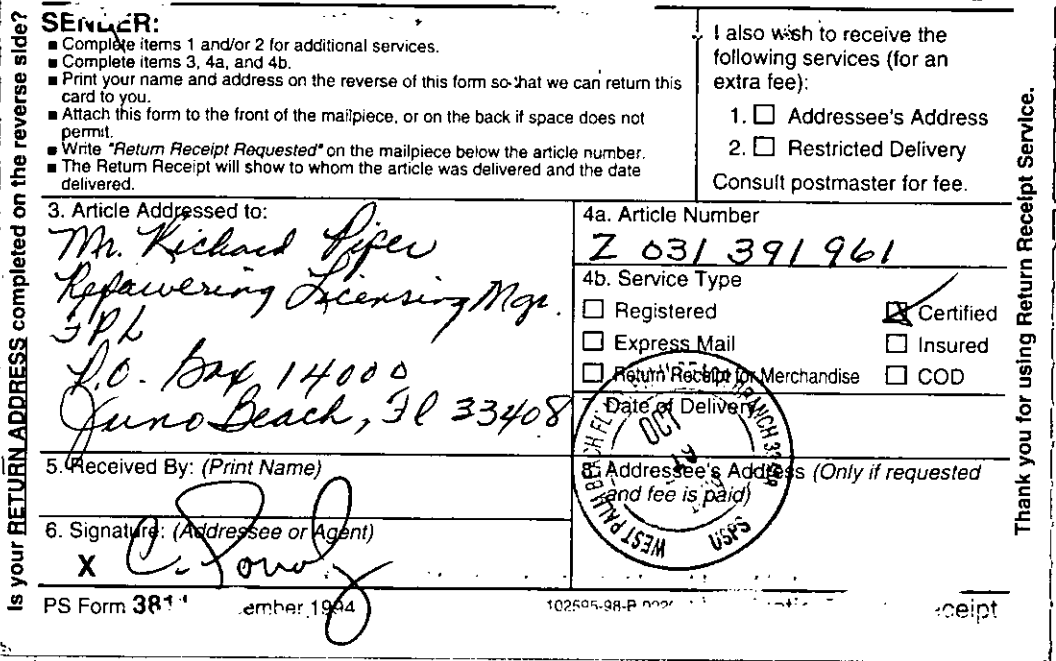 Is your RETURN ADDRESS completed on the reverse side?
SENDER:
■ Complete items 1 and/or 2 for additional services.
■ Complete items 3, 4a, and 4b.
■ Print your name and address on the reverse of this form so that we can return this
card to you.
■ Attach this form to the front of the mailpiece, or on the back if space does not
permit.
■ Write "Return Receipt Requested" on the mailpiece below the article number.
■ The Return Receipt will show to whom the article was delivered and the date
delivered.
I also wish to receive the
following services (for an
extra fee):
1. ☐ Addressee's Address
2. ☐ Restricted Delivery
Consult postmaster for fee.
3. Article Addressed to:
Mr. Richard Piper
Repowering Licensing Mgr.
FPL
P.O. Box 14000
Juno Beach, Fl 33408
4a. Article Number
Z 031 391 961
4b. Service Type
☐ Registered
☒ Certified
☐ Express Mail
☐ Insured
☐ Return Receipt for Merchandise
☐ COD
Date of Delivery
WEST PALM BEACH FL BRANCH
OCT
USPS
5. Received By: (Print Name)
8. Addressee's Address (Only if requested
and fee is paid)
6. Signature: (Addressee or Agent)
X C.
PS Form 381 ember 1994
102595-98-B
ceipt
Thank you for using Return Receipt Service.